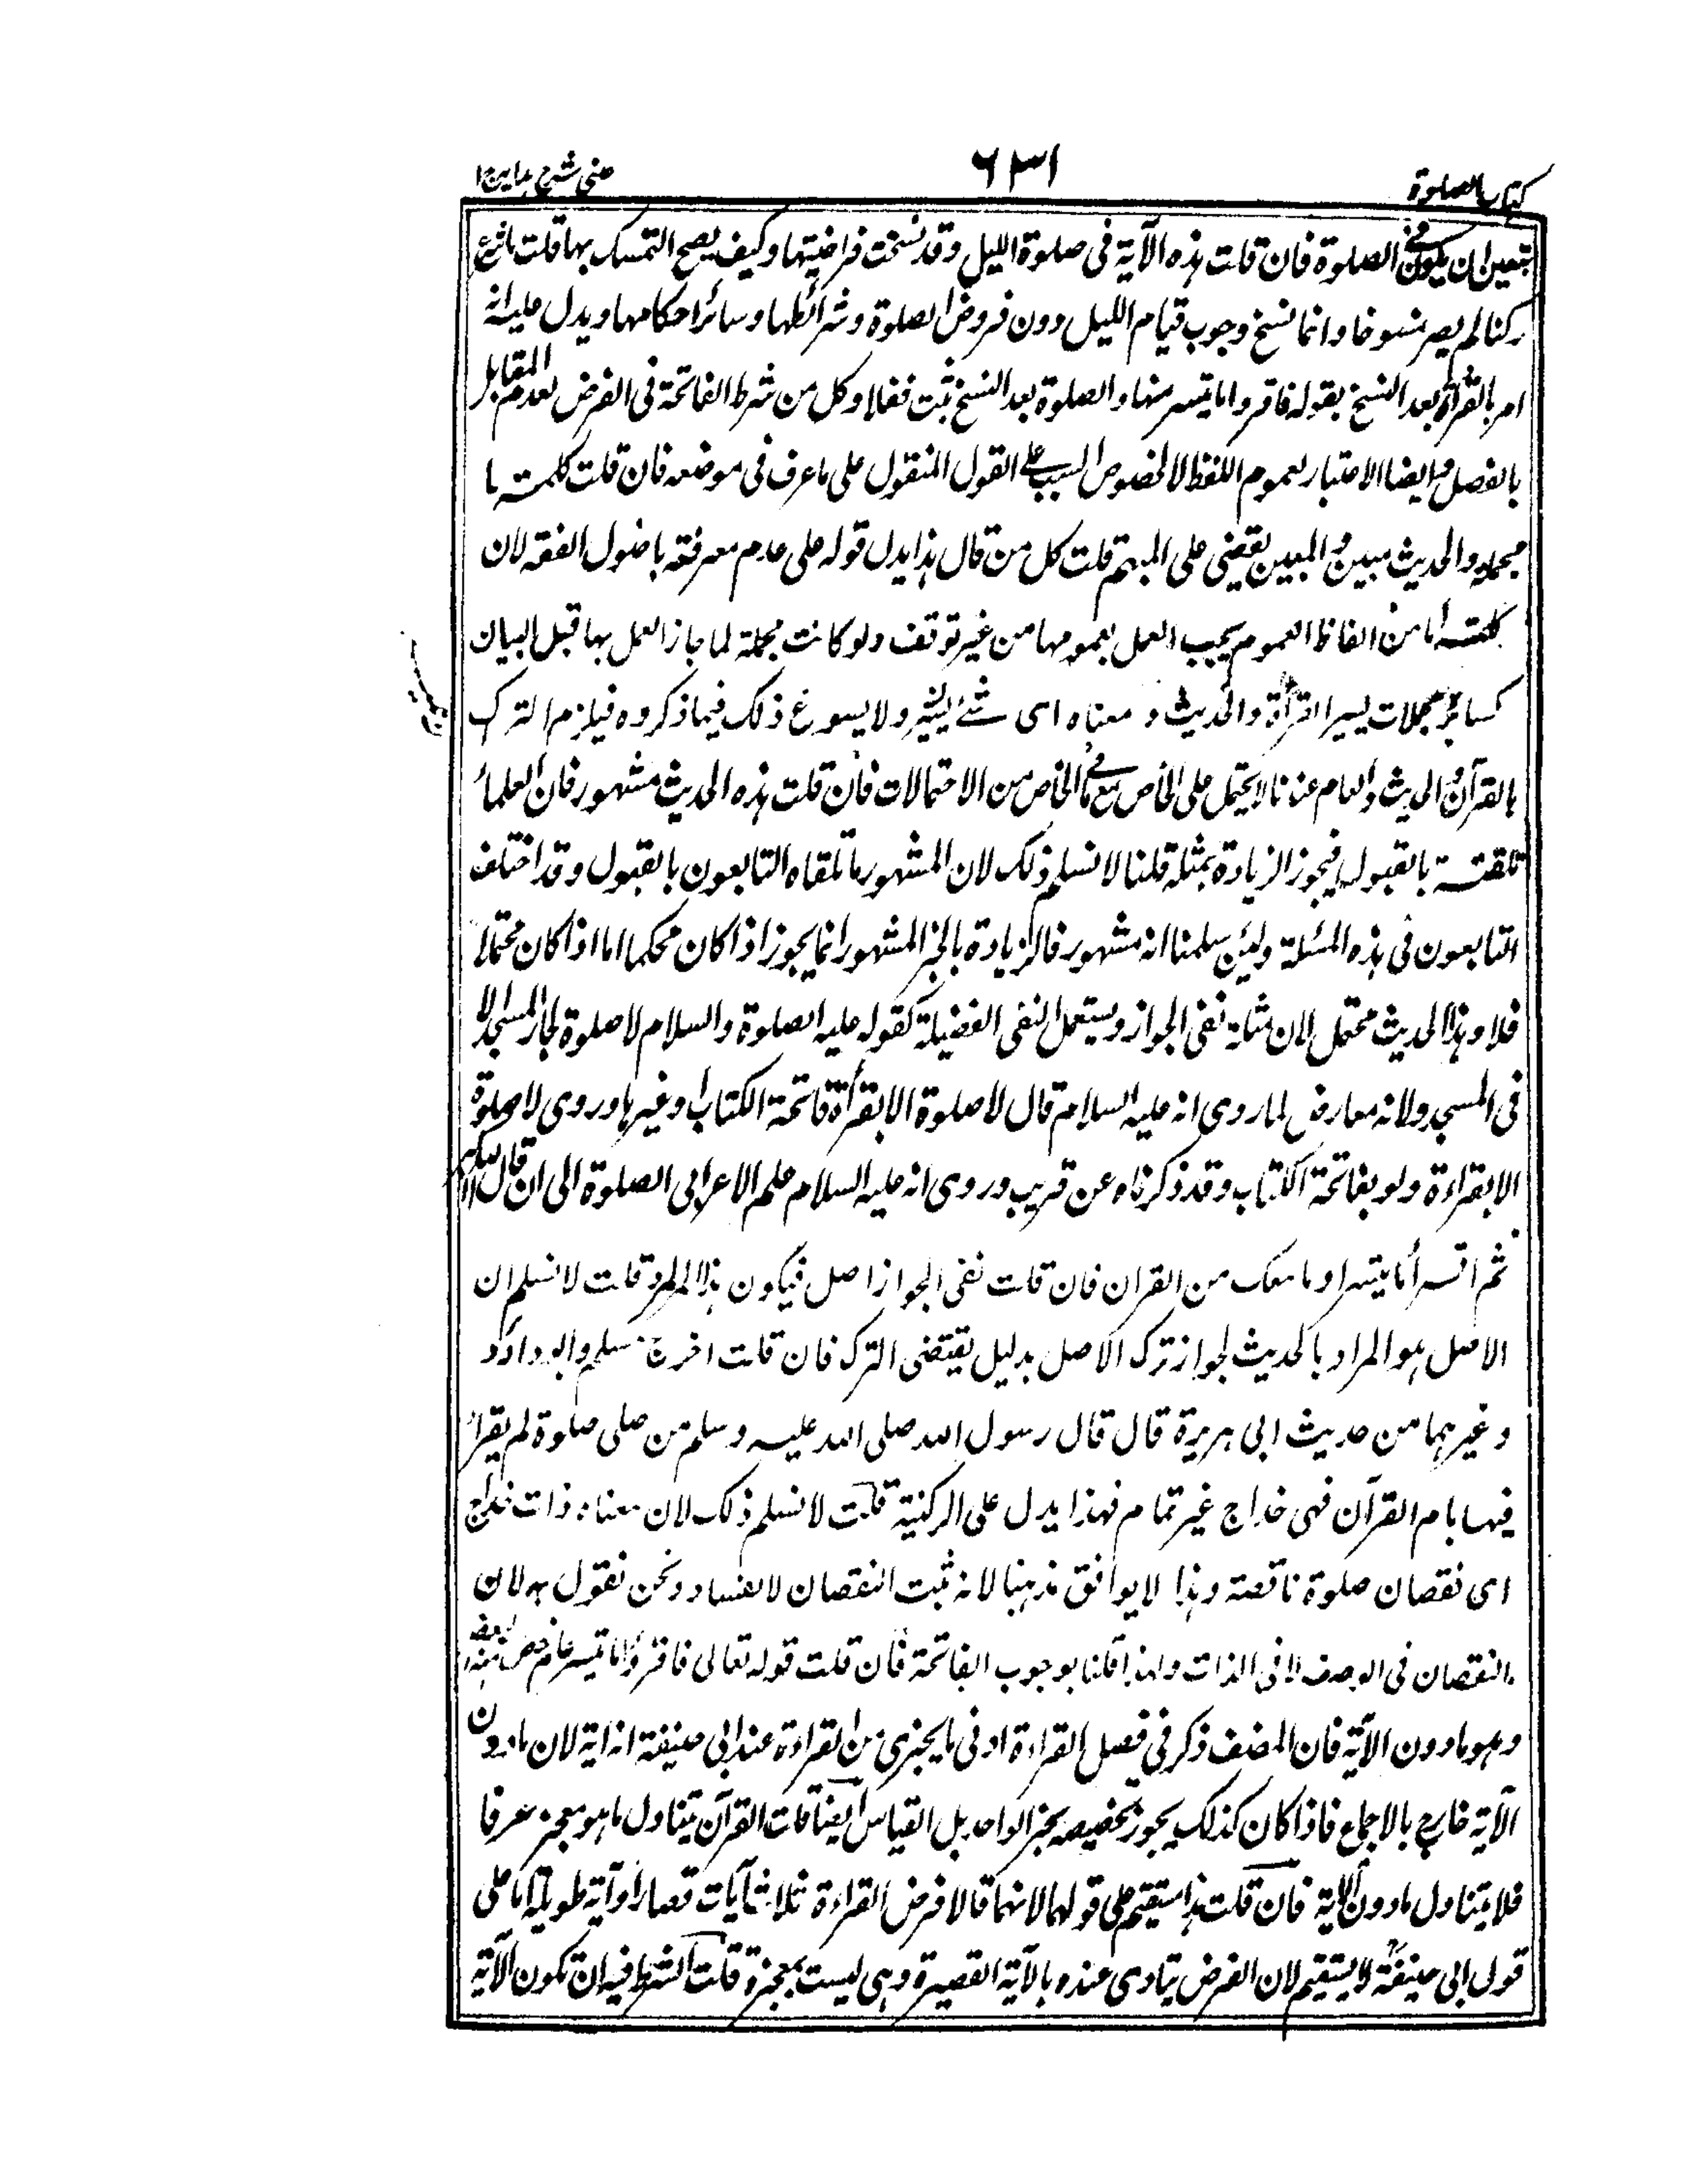 كتاب الصلوة
٦٣١
عينى شرح هداية ج١
فتعين ان يكون فى الصلوة فان قلت هذه الآية فى صلوة الليل وقد نسخت فرضيتها وكيف يصح التمسك بها قلت ما شرع
ركنا لم يصر منسوخا وانما نسخ وجوب قيام الليل دون فروض الصلوة وشرائطها وسائر احكامها ويدل عليه انه
امر بالقرأة بعد النسخ بقوله فاقروا ما تيسر منها والصلوة بعد النسخ ثبت نفلا وكل من شرط الفاتحة فى الفرض لعدم القابل
بالفصل وايضا الاعتبار لعموم اللفظ لا لخصوص السبب على القول المنقول على ما عرف فى موضعه فان قلت كلمة ما
مجملة والحديث مبين والمبين يقضى على المبهم قلت كل من قال هذا يدل قوله على عدم معرفته باصول الفقه لان
كلمة ما من الفاظ العموم يجب العمل بعمومها من غير توقف ولو كانت مجملة لما جاز العمل بها قبل البيان
كسائر مجملات يسير القرأة والحديث و معناه اى شئ يتيسر ولا يسوغ ذلك فيما ذكروه فيلزم الترك
بالقرآن والحديث والعام عندنا لا يحتمل على الخاص مع ما فى الخاص من الاحتمالات فان قلت هذه الحديث مشهور فان العلماء
تلقته بالقبول فيجوز الزيادة بمثله قلنا لا نسلم ذلك لان المشهور ما تلقاه التابعون بالقبول وقد اختلف
التابعون فى هذه المسئلة ولئن سلمنا انه مشهور فالزيادة بالخبر المشهور انما يجوز اذا كان محكما اما اذا كان محتملا
فلا وهذا الحديث محتمل لان مثله نفى الجواز ويستعمل لنفى الفضيلة كقوله عليه الصلوة والسلام لا صلوة لجار المسجد الا
فى المسجد ولانه معارض لما روى انه عليه السلام قال لا صلوة الا بقرأة فاتحة الكتاب او غيرها وروى لا صلوة
الا بقراءة ولو بفاتحة الكتاب وقد ذكرناه عن قريب وروى انه عليه السلام علم الاعرابى الصلوة الى ان قال
ثم اقرأ ما تيسر او ما معك من القران فان قلت نفى الجواز اصل فيكون هذا المراد قلت لا نسلم ان
الاصل هو المراد بالحديث لجواز ترك الاصل بدليل يقتضى الترك فان قلت اخرج مسلم وابو داؤد
وغيرهما من حديث ابى هريرة قال قال رسول الله صلى الله عليه وسلم من صلى صلوة لم يقرأ
فيها بام القرآن فهى خداج غير تمام فهذا يدل على الركنية قلت لا نسلم ذلك لان معناه ذات خداج
اى نقصان صلوة ناقصة وهذا لا يوافق مذهبنا لانه ثبت النقصان لا الفساد ونحن نقول به لان
النقصان فى الوصف لا فى الذات ولهذا قلنا بوجوب الفاتحة فان قلت قوله تعالى فاقرؤا ما تيسر عام خص منه البعض
وهو ما دون الآية فان المصنف ذكر فى فصل القراءة ادنى ما يجزى من القراءة عند ابى حنيفة انه اية لان ما دون
الآية خارج بالاجماع فاذا كان كذلك يجوز تخصيصه بخبر الواحد بل القياس ايضا قلت القرآن يتناول ما هو معجز عرفا
فلا يتناول ما دون الاية فان قلت هذا مستقيم على قولهما لانهما قالا فرض القراءة ثلاث آيات قصار او آية طويلة اما على
قول ابى حنيفة لا يستقيم لان الفرض يتادى عنده بالآية القصيرة وهى ليست بمعجزة قلت الشرط فيه ان تكون الآية